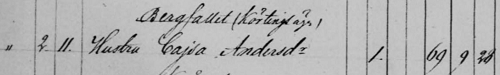 Bergfallet (Körtingsäga)
" 2. 11. Hustru Cajsa Andersdr 1. 69 9 28